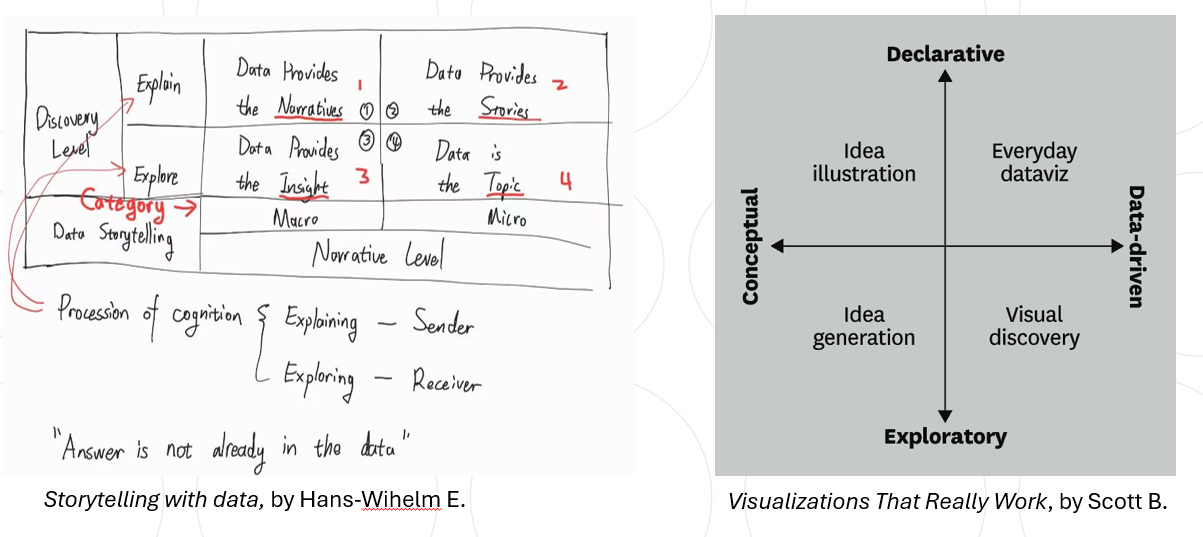 Discovery
Level
Explain
Data Provides 1
the Narratives ①
② Data Provides 2
the Stories
Explore
Data Provides ③
the Insight 3
④ Data is
the Topic 4
Category →
Data Storytelling
Macro
Micro
Narrative Level
Procession of cognition { Explaining — Sender
Exploring — Receiver
"Answer is not already in the data"
Storytelling with data, by Hans-Wihelm E.
Declarative
Idea
illustration
Everyday
dataviz
Conceptual
Data-driven
Idea
generation
Visual
discovery
Exploratory
Visualizations That Really Work, by Scott B.